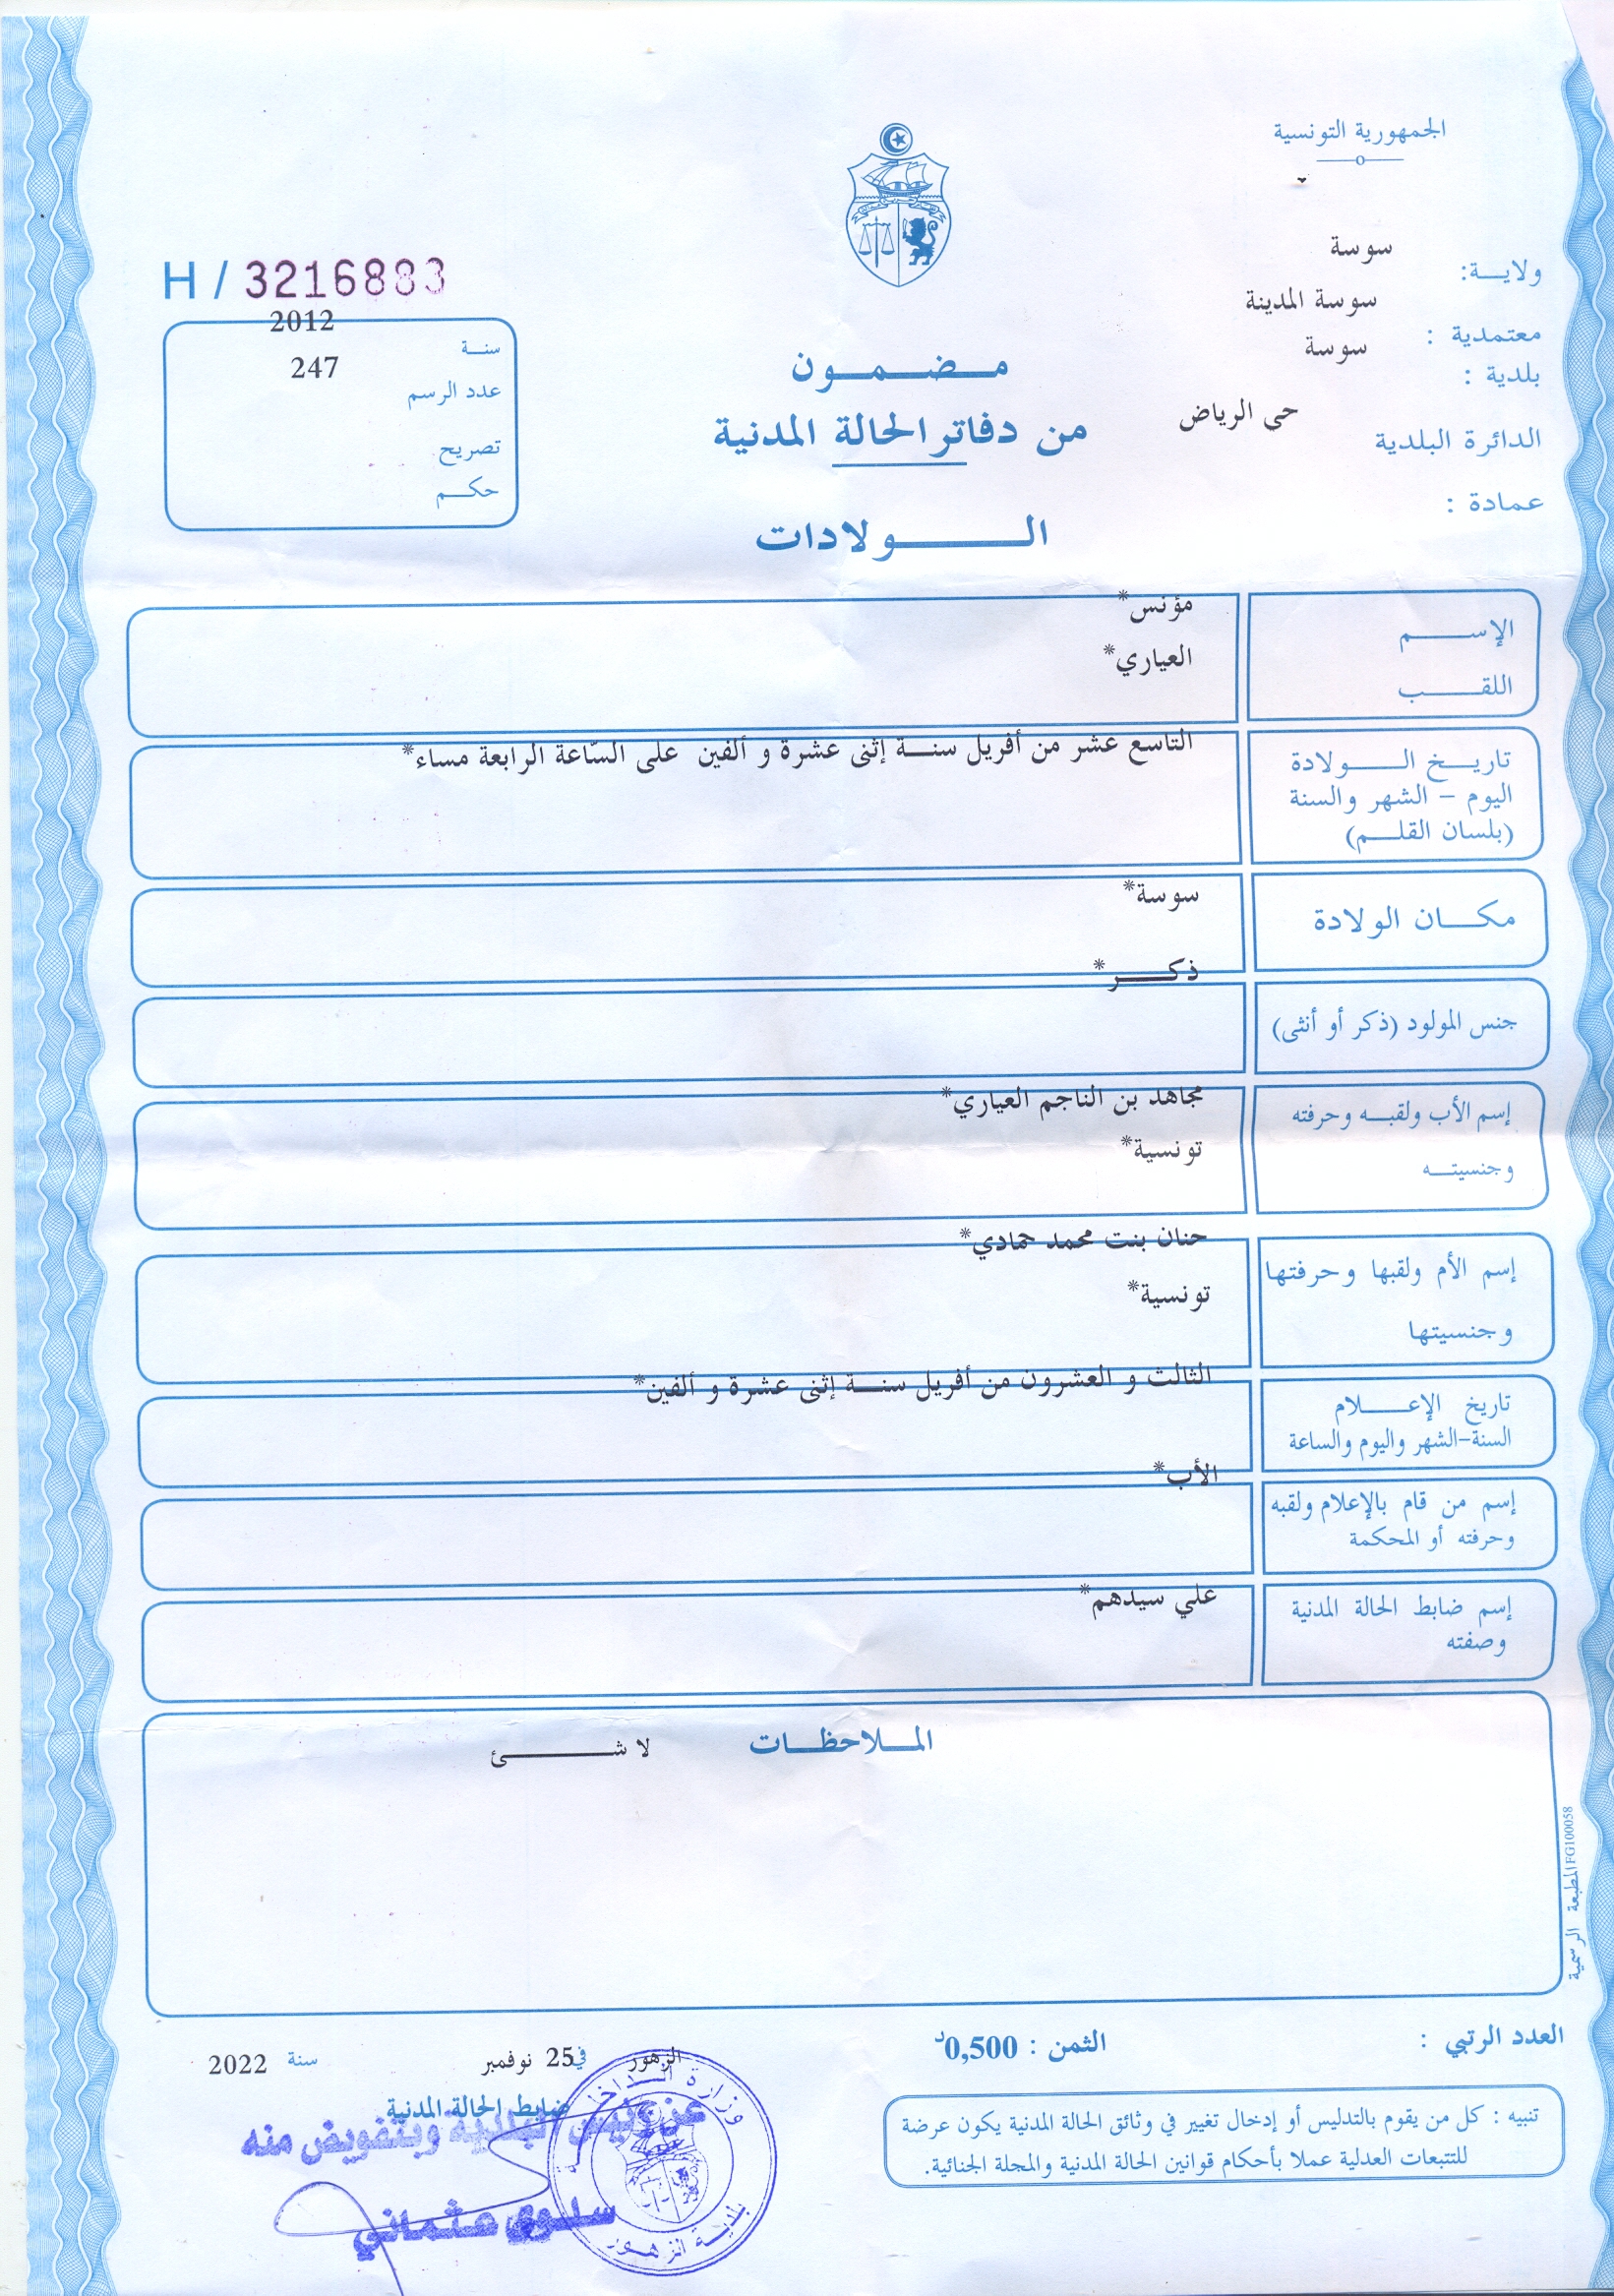 الجمهورية التونسية
ولاية: سوسة
معتمدية : سوسة المدينة
بلدية : سوسة
الدائرة البلدية حى الرياض
عمادة :
H / 3216883
سنة 2012
عدد الرسم 247
تصريح
حكم
مضمون
من دفاتر الحالة المدنية
الولادات
الإسم مؤنس*
اللقب العياري*
تاريخ الولادة
اليوم - الشهر والسنة
(بلسان القلم)
التاسع عشر من أفريل سنة إثنى عشرة و ألفين على السّاعة الرابعة مساء*
مكان الولادة سوسة*
جنس المولود (ذكر أو أنثى) ذكر*
إسم الأب ولقبه وحرفته مجاهد بن الناجم العياري*
وجنسيته تونسية*
إسم الأم ولقبها وحرفتها حنان بنت محمد حمادي*
وجنسيتها تونسية*
تاريخ الإعلام
السنة-الشهر واليوم والساعة
الثالث و العشرون من أفريل سنة إثنى عشرة و ألفين*
إسم من قام بالإعلام ولقبه
وحرفته أو المحكمة
الأب*
إسم ضابط الحالة المدنية
وصفته
علي سيدهم*
الملاحظات
لا شئ
المطبعة الرسمية FG100058
العدد الرتبي :
الثمن : 0,500د
تنبيه : كل من يقوم بالتدليس أو إدخال تغيير في وثائق الحالة المدنية يكون عرضة
للتتبعات العدلية عملا بأحكام قوانين الحالة المدنية والمجلة الجنائية.
الزهور في 25 نوفمبر سنة 2022
ضابط الحالة المدنية
عن رئيس البلدية وبتفويض منه
سلوى عثماني
وزارة الداخلية
بلدية الزهور